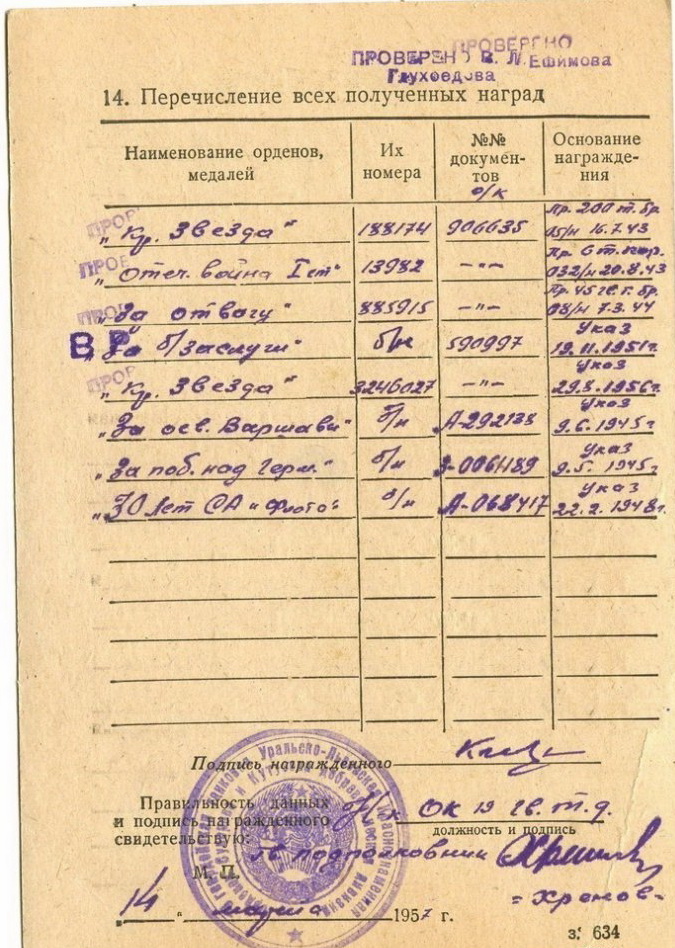 ПРОВЕРЕНО
ПРОВЕРЕНО В. Л. Ефимова
Глухоедова
14. Перечисление всех полученных наград
Наименование орденов, медалей
Их номера
№№ документов
о/к
Основание награждения
ПРОВ
„Кр. Звезда" 188174 906635 Пр. 200 т. бр. 05/н 16.7.43
ПРОВ
„Отеч. война I ст" 13982 —"— Пр. 6 т. кор. 032/н 20.8.43
ПРОВ
„За отвагу" 885915 —"— Пр. 45 гв. т. бр. 08/н 7.3.44
ВР
„За б/заслуги" б/н 590997 Указ 19.11.1951г.
ПРОВ
„Кр. Звезда" 3246027 —"— Указ 29.8.1956г.
„За осв. Варшавы" б/н А-292138 Указ 9.6.1945г
„За поб. над Герм." б/н 9.5.1945г Указ
„30 лет СА и Флота" б/н А-068417 Указ 22.2.1948г.
Подпись награжденного
Правильность данных
и подпись награжденного
свидетельствую:
ОК 19 гв. т. д.
должность и подпись
гв. подполковник
= Хренов =
М. П.
14 марта 1957 г.
з. 634